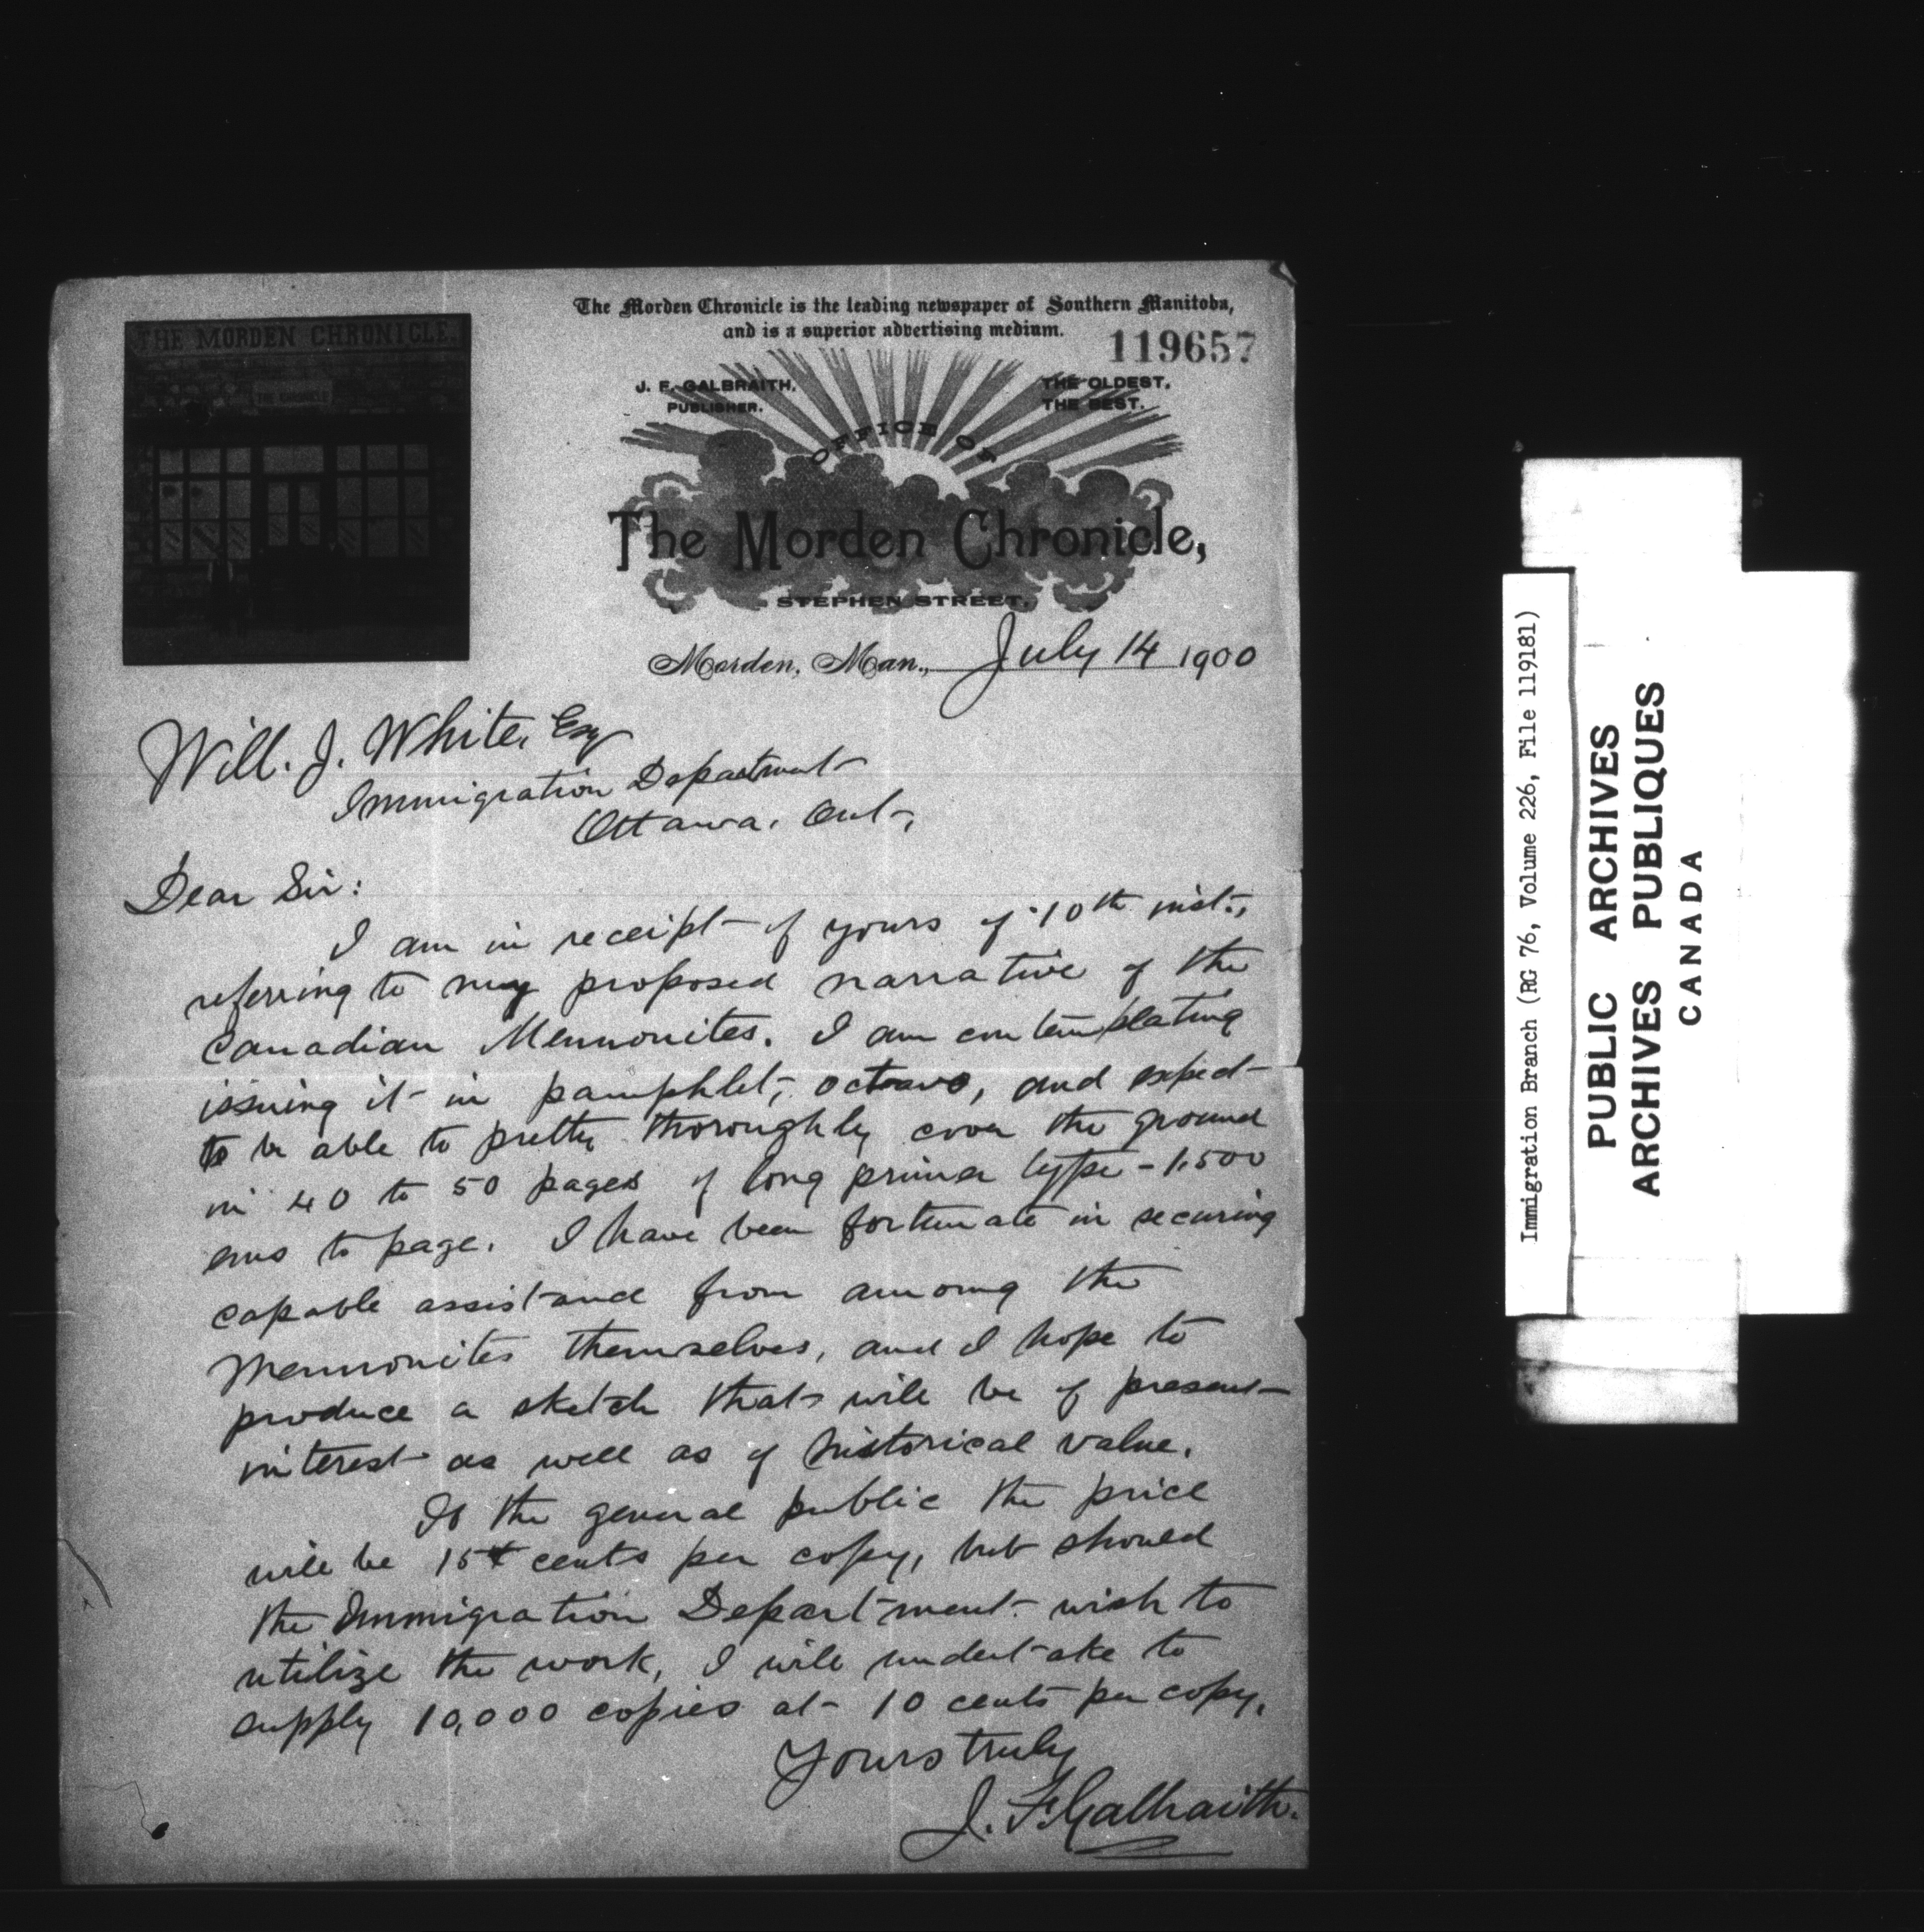 THE MORDEN CHRONICLE.
THE CHRONICLE
The Morden Chronicle is the leading newspaper of Southern Manitoba,
and is a superior advertising medium.
119657
J. F. GALBRAITH,
PUBLISHER.
THE OLDEST.
THE BEST.
OFFICE OF
The Morden Chronicle,
STEPHEN STREET.
Morden, Man., July 14 1900
Will. J. White, Esq
Immigration Department
Ottawa, Ont,
Dear Sir:
I am in receipt of yours of 10th inst.,
referring to my proposed narrative of the
Canadian Mennonites. I am contemplating
issuing it in pamphlet, octavo, and expect
to be able to pretty thoroughly cover the ground
in 40 to 50 pages of long primer type - 1,500
ems to page. I have been fortunate in securing
capable assistance from among the
Mennonites themselves, and I hope to
produce a sketch that will be of present
interest as well as of historical value.
To the general public the price
will be 15 cents per copy, but should
the Immigration Department wish to
utilize the work, I will undertake to
supply 10,000 copies at 10 cents per copy.
Yours truly
J. F. Galbraith.
Immigration Branch (RG 76, Volume 226, File 119181)
PUBLIC ARCHIVES
ARCHIVES PUBLIQUES
CANADA